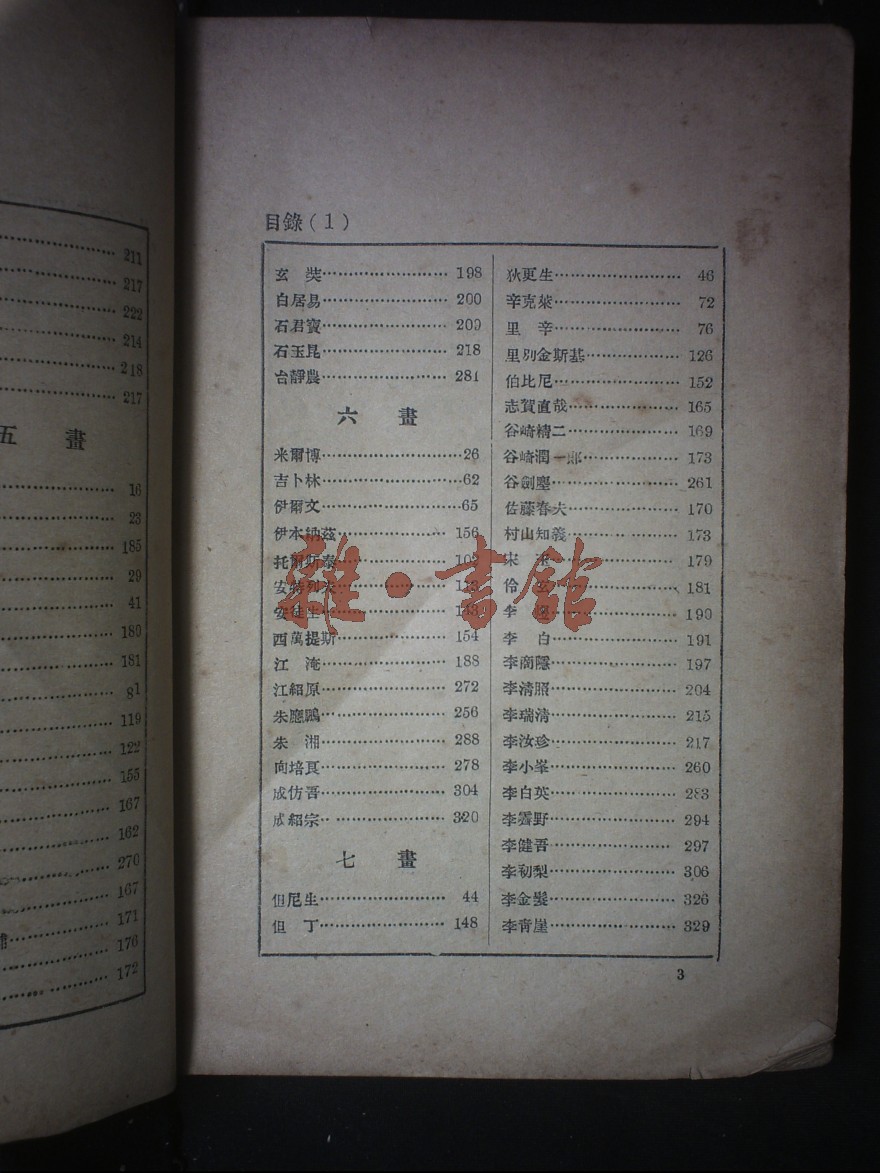 211
217
222
214
218
217
五 畫
16
23
185
29
41
180
181
81
119
122
155
167
162
270
167
171
176
172
目錄(1)
玄 奘 198
白居易 200
石君寶 209
石玉昆 218
台靜農 281
六 畫
米爾博 26
吉卜林 62
伊爾文 65
伊本納茲 156
托爾斯泰
安特列夫
安徒生
西萬提斯 154
江 淹 188
江紹原 272
朱應鵬 256
朱 湘 288
向培良 278
成仿吾 304
成紹宗 320
七 畫
但尼生 44
但 丁 148
狄更生 46
辛克萊 72
里 辛 76
里別金斯基 126
伯比尼 152
志賀直哉 165
谷崎精二 169
谷崎潤一郎 173
谷劍塵 261
佐藤春夫 170
村山知義 173
宋 玉 179
伶 玄 181
李 190
李 白 191
李商隱 197
李清照 204
李瑞清 215
李汝珍 217
李小峯 260
李白英 283
李霽野 294
李健吾 297
李初梨 306
李金髮 326
李青崖 329
3
雜·書館